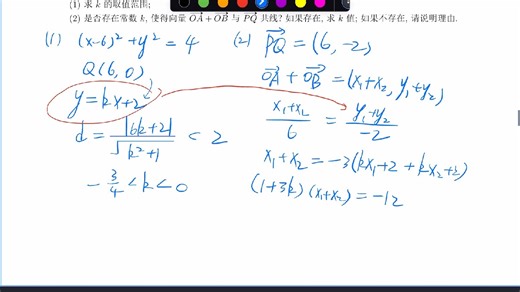 (1) 求 k 的取值范围;
(2) 是否存在常数 k, 使得向量 OA + OB 与 PQ 共线? 如果存在, 求 k 值; 如果不存在, 请说明理由.
(1) (x-6)² + y² = 4
Q(6, 0)
y = kx+2
d = |6k+2| / √(k²+1) < 2
-3/4 < k < 0
(2) PQ = (6, -2)
OA + OB = (x₁+x₂, y₁+y₂)
(x₁+x₂)/6 = (y₁+y₂)/-2
x₁+x₂ = -3(kx₁+2 + kx₂+2)
(1+3k)(x₁+x₂) = -12